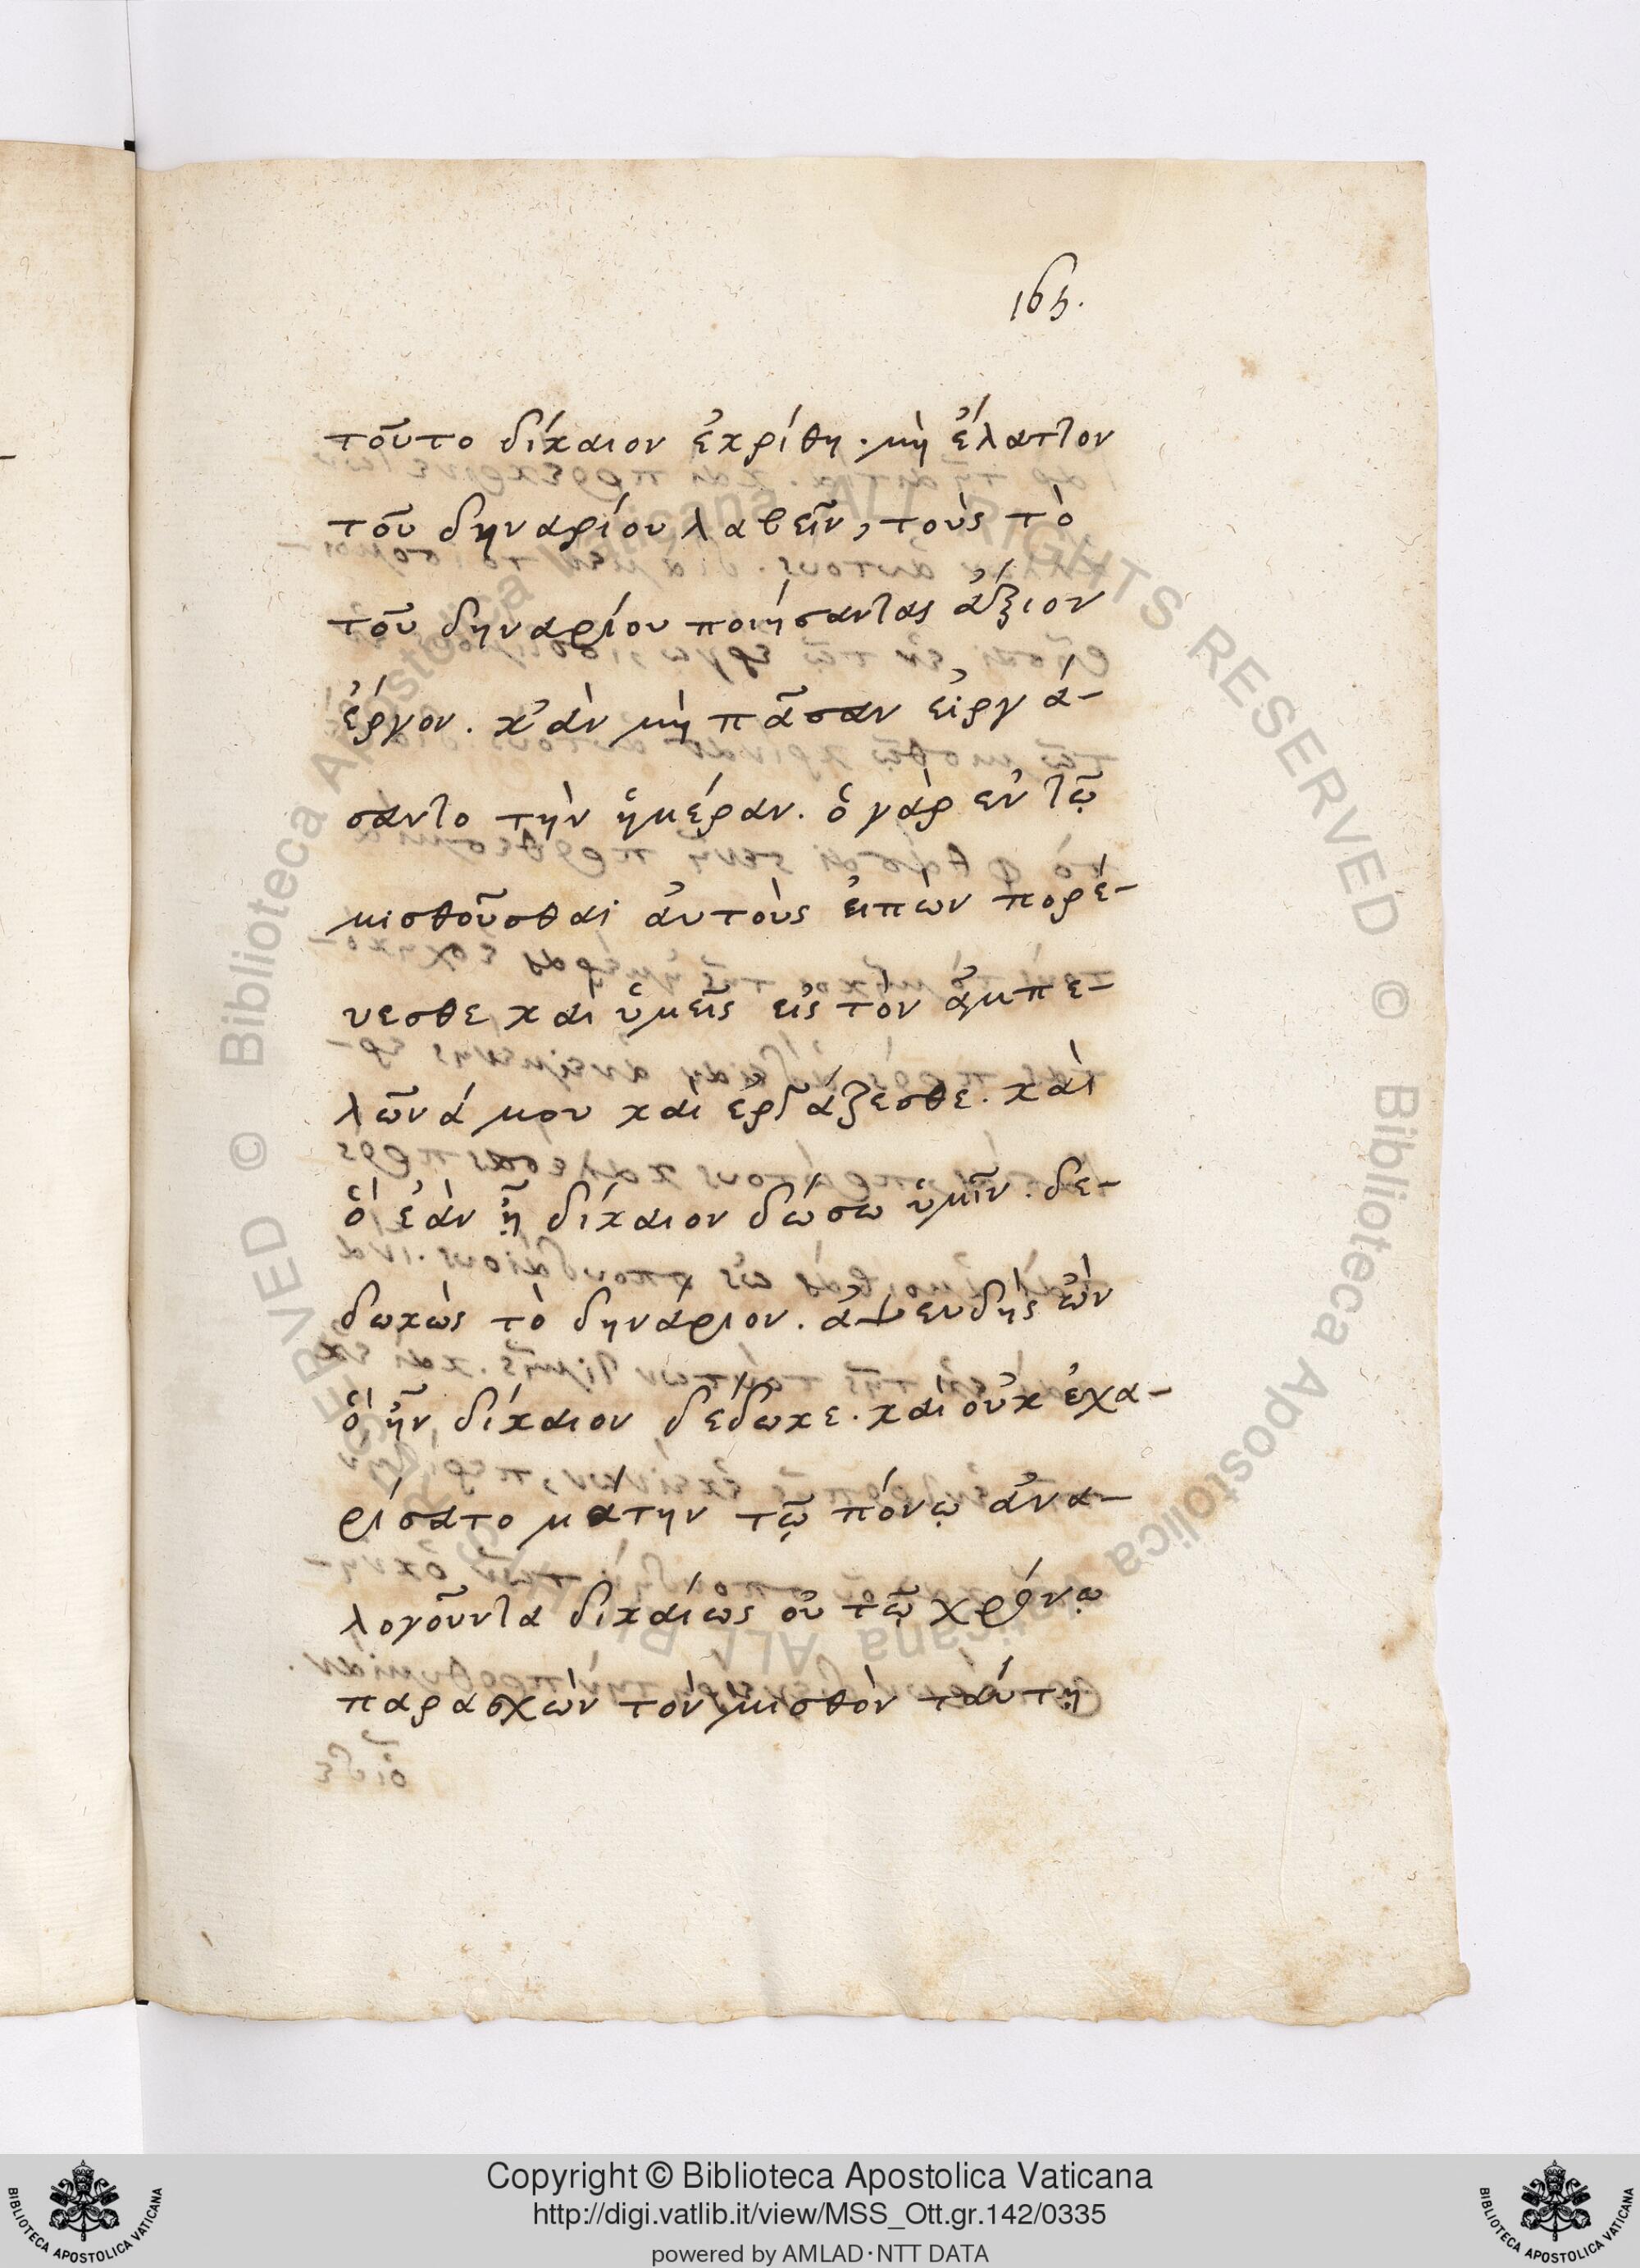 165.
τοῦτο δίκαιον ἐκρίθη. μὴ ἔλαττον
τοῦ δηναρίου λαβεῖν, τοὺς τὸ
τοῦ δηναρίου ποιήσαντας ἄξιον
ἔργον. κἂν μὴ πᾶσαν εἰργά-
σαντο τὴν ἡμέραν. ὁ γὰρ ἐν τῷ
μισθοῦσθαι ἀυτοὺς ἐιπὼν πορέ-
υεσθε καὶ ὑμεῖς εἰς τὸν ἀμπε-
λῶνά μου καὶ ἐργάζεσθε. καὶ
ὃ ἐὰν ᾖ δίκαιον δώσω ὑμῖν. δε-
δωκὼς τὸ δηνάριον. ἀψευδὴς ὢν
ὃ ἦν δίκαιον δέδωκε. καὶ οὐκ ἐχα-
ρίσατο ματην τῷ πόνῳ ἀνα-
λογοῦντα δικαίως οὐ τῷ χρόνῳ
παρασχὼν τὸν μισθὸν ταύτῃ
Copyright © Biblioteca Apostolica Vaticana
http://digi.vatlib.it/view/MSS_Ott.gr.142/0335
powered by AMLAD·NTT DATA
BIBLIOTECA APOSTOLICA VATICANA
BIBLIOTECA APOSTOLICA VATICANA